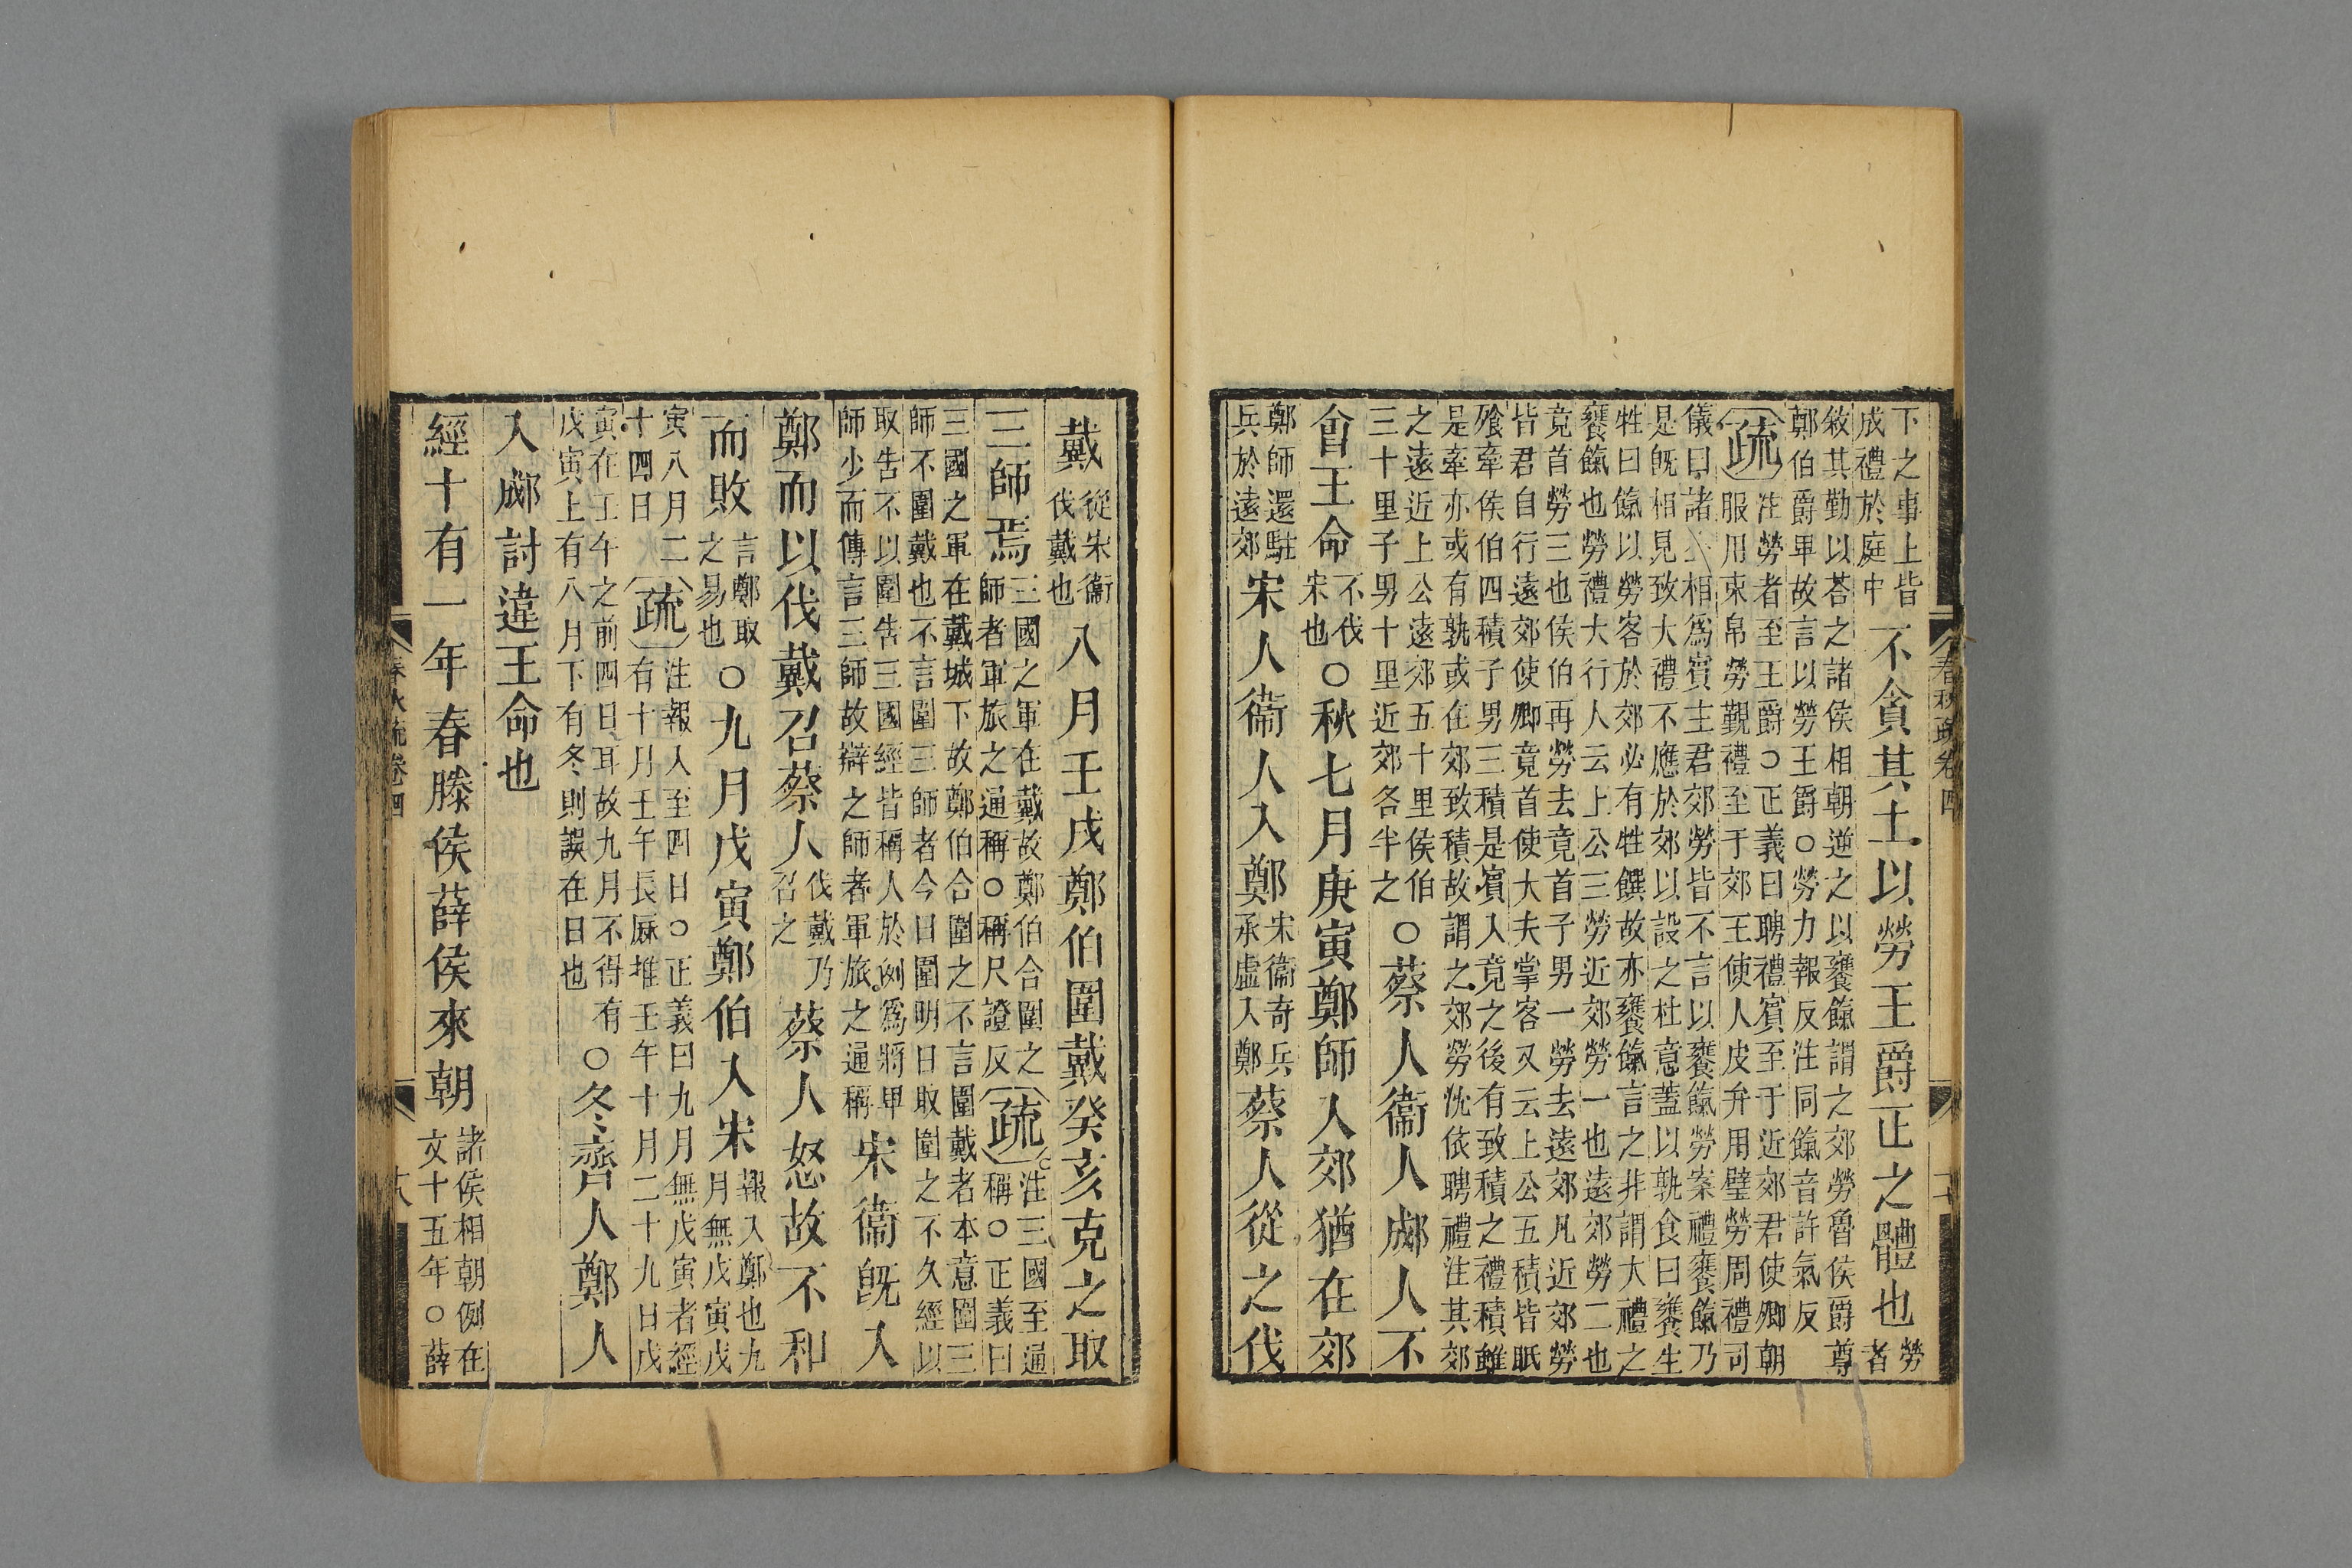 下之事上皆
成禮於庭中
不貪其土以勞王爵正之體也
勞
者
敘其勤以荅之諸侯相朝逆之以饔餼謂之郊勞魯侯爵尊
鄭伯爵卑故言以勞王爵○勞力報反注同餼音許氣反
疏
注勞者至王爵○正義曰聘禮賓至于近郊君使卿朝
服用束帛勞覲禮至于郊王使人皮弁用璧勞周禮司
儀曰諸相爲賓主君郊勞皆不言以饔餼勞案禮饔餼乃
是旣相見致大禮不應於郊以設之杜意蓋以孰食曰饔生
牲曰餼以勞客於郊必有牲饌故亦饔餼言之非謂大禮之
饔餼也勞禮大行人云上公三勞近郊勞一也遠郊勞二也
竟首勞三也侯伯再勞去竟首子男一勞去遠郊凡近郊勞
皆君自行遠郊使卿竟首使大夫掌客又云上公五積皆眂
飧牽侯伯四積子男三積是賓入竟之後有致積之禮積雖
是牽亦或有孰或在郊致積故謂之郊勞沈依聘禮注其郊
之遠近上公遠郊五十里侯伯
三十里子男十里近郊各半之
○蔡人衞人郕人不
會王命
不伐
宋也
○秋七月庚寅鄭師入郊猶在郊
鄭師還駐
兵於遠郊
宋人衞人入鄭
宋衞奇兵
承虛入鄭
蔡人從之伐
春秋疏卷四
戴
從宋衞
伐戴也
八月壬戌鄭伯圍戴癸亥克之取
三師焉
三國之軍在戴故鄭伯合圍之
師者軍旅之通稱○稱尺證反
疏
注三國至通
稱○正義曰
三國之軍在戴城下故鄭伯合圍之不言圍戴者本意圍三
師不圍戴也不言圍三師者今日圍明日取圍之不久經以
取告不以圍告三國經皆稱人於例爲將卑
師少而傳言三師故辯之師者軍旅之通稱
宋衞旣入
鄭而以伐戴召蔡人
伐戴乃
召之
蔡人怒故不和
而敗
言鄭取
之易也
○九月戊寅鄭伯入宋
報入鄭也九
月無戊寅戊
寅八月二
十四日
疏
注報入至四日○正義曰九月無戊寅者經
有十月壬午長厤推壬午十月二十九日戊
寅在壬午之前四日耳故九月不得有
戊寅上有八月下有冬則誤在日也
○冬齊人鄭人
入郕討違王命也
經十有一年春滕侯薛侯來朝
諸侯相朝例在
文十五年○薛
春秋疏卷四
十八